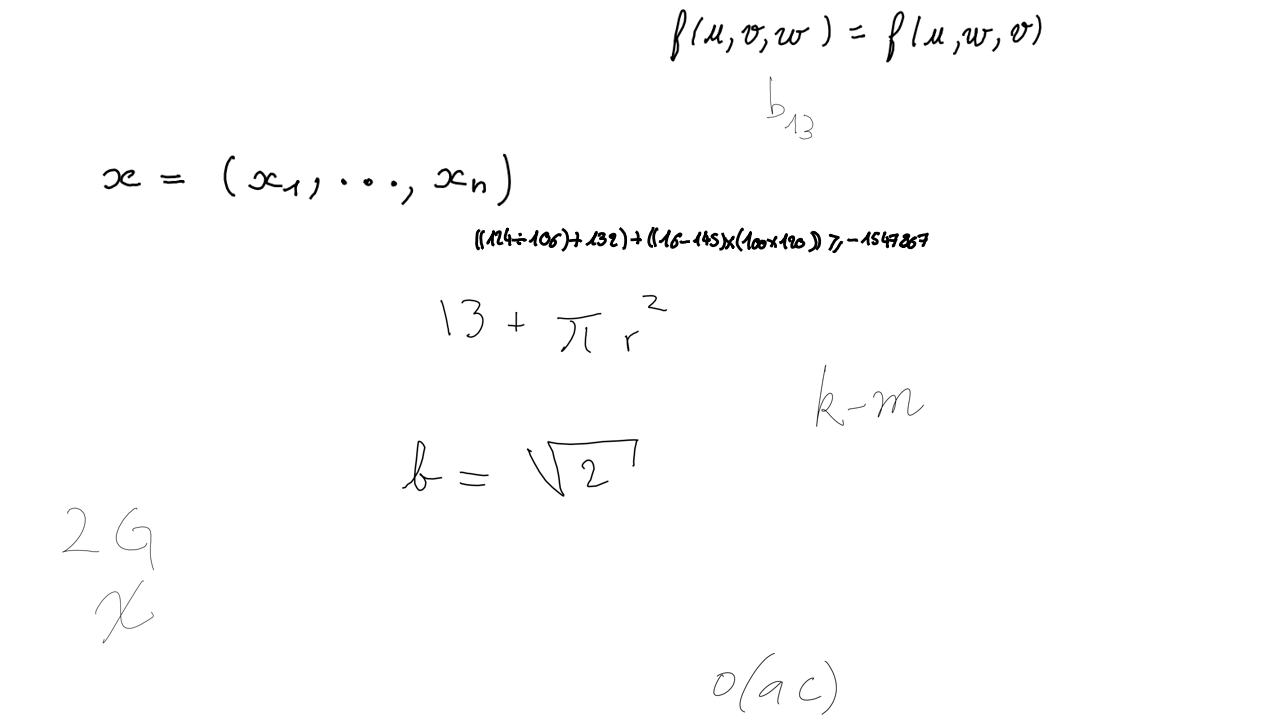 f(u,v,w) = f(u,w,v)
b_{13}
x = (x_1, ..., x_n)
((124÷106)+132)+((16-145)×(100×120)) ≥ -1547867
13 + πr^2
k-m
b = √2
2G
x
o(ac)